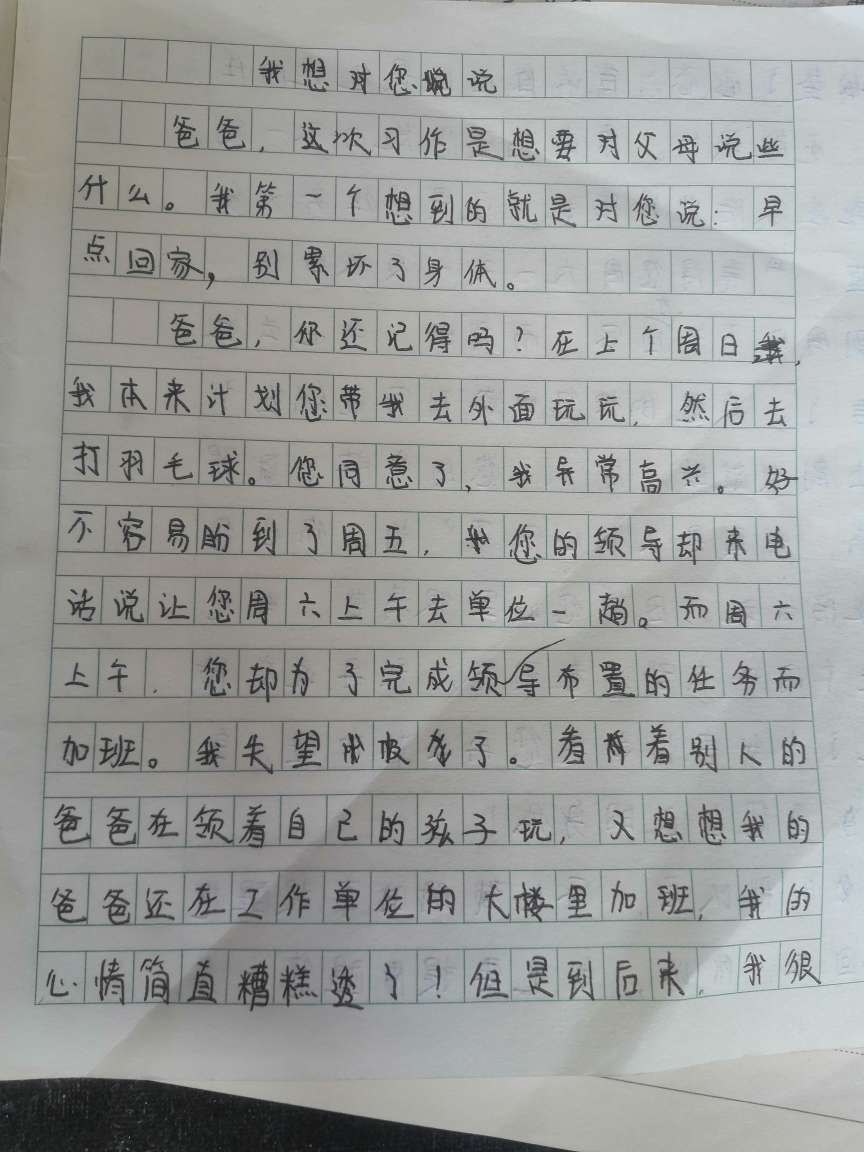 我想对您说
爸爸，这次习作是想要对父母说些
什么。我第一个想到的就是对您说：早
点回家，别累坏了身体。
爸爸，你还记得吗？在上个周日，
我本来计划您带我去外面玩玩，然后去
打羽毛球。您同意了，我异常高兴。好
不容易盼到了周五，您的领导却来电
话说让您周六上午去单位一趟。而周六
上午，您却为了完成领导布置的任务而
加班。我失望极了。看着别人的
爸爸在领着自己的孩子玩，又想想我的
爸爸还在工作单位的大楼里加班，我的
心情简直糟糕透了！但是到后来，我很